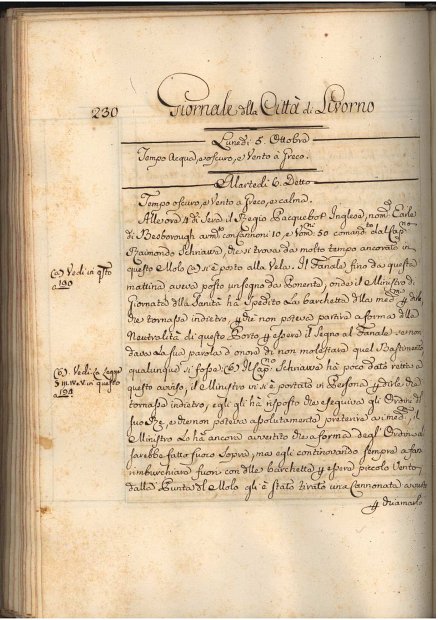 230 Giornale della Città di Livorno
Lunedì 5. Ottobre
Tempo Acqua, e oscuro, e Vento à Greco.
Martedì 6. Detto
Tempo oscuro, e Vento à Greco, e calma.
Alle ore 4 di Sera il Regio Pacquebot Inglese, nom.º Earle
di Besborough arm.º con Cannoni 10, e Uom.ni 50 comand.º dal Cap.no
Raimondo Schnawe, che si trova da molto tempo ancorato in
questo Molo (a) si è posto alla Vela. Il Fanale fino da questa
mattina aveva posto un segno da Ponente, onde il Ministro di
Giornata della Sanità hà spedito La barchetta della med.ma p dirle
che tornasse indietro, p che non poteva partire a forma della
Neutralità di questo Porto, p essere il Segno al Fanale se non
dava La sua parola d'onore di non molestare quel Bastimento
qualunque si fosse. (b) Il Cap.no Schnawe hà poco dato retta a
questo avviso, il Ministro vi si è portato in Persona p dirle che
tornasse indietro, egli gli hà risposto che eseguiva gli Ordini di
suo Rè, e che non poteva assolutamente preterire ai med.mi, il
Ministro Lo hà ancora avvertito che a forma degl'Ordini
sarebbe fatto fuoco Sopra, ma egli continovando sempre a farsi
rimburchiare fuori con delle barchette p essere piccolo Vento
dalla Punta del Molo gli è stato tirato una Cannonata
p chiamarlo
(a) Vedi in qsto
a 190
(b) Vedi La Legge
in questo
a 191